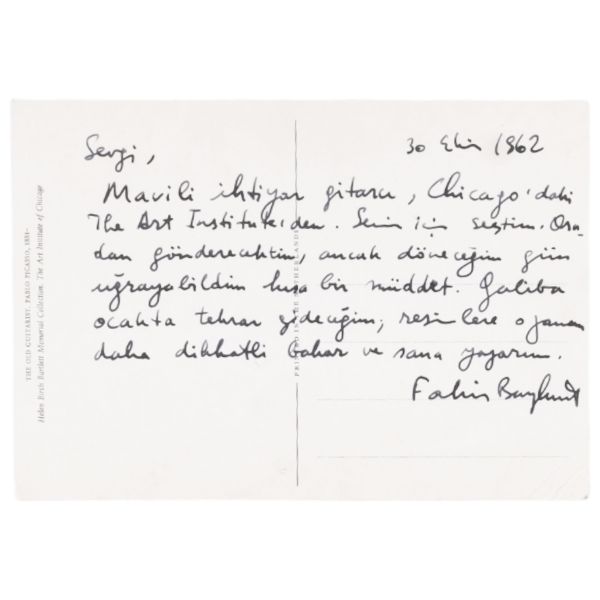 Sevgi,
30 Ekim 1962
Mavili ihtiyar gitarcı, Chicago'daki
The Art Institute'den. Senin için seçtim. Ora-
dan gönderecektim, ancak döneceğim gün
uğrayabildim kısa bir müddet. Galiba
ocakta tekrar gideceğim; resimlere o zaman
daha dikkatli bakar ve sana yazarım.
THE OLD GUITARIST, PABLO PICASSO, 1881–
Helen Birch Bartlett Memorial Collection, The Art Institute of Chicago
PRINTED IN THE NETHERLANDS